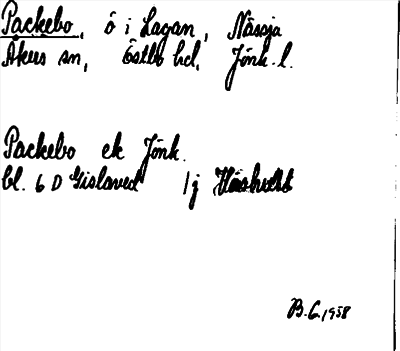 Packebo, ö i Lagan, Nässja
Åkers sn, Östbo hd, Jönk. l.
Packebo ek Jönk.
bl. 6 D Gislaved 1j
B. C. 1958